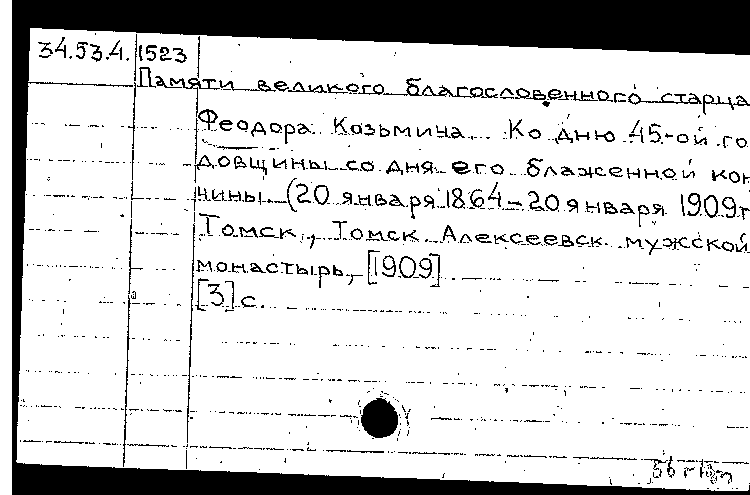 34.53.4. 1523
Памяти великого благословенного старца
Феодора Козьмина. Ко дню 45-ой го
довщины со дня его блаженной кон
чины. (20 января 1864-20 января 1909 г
Томск, Томск. Алексеевск. мужской
монастырь, [1909]
[3] с.